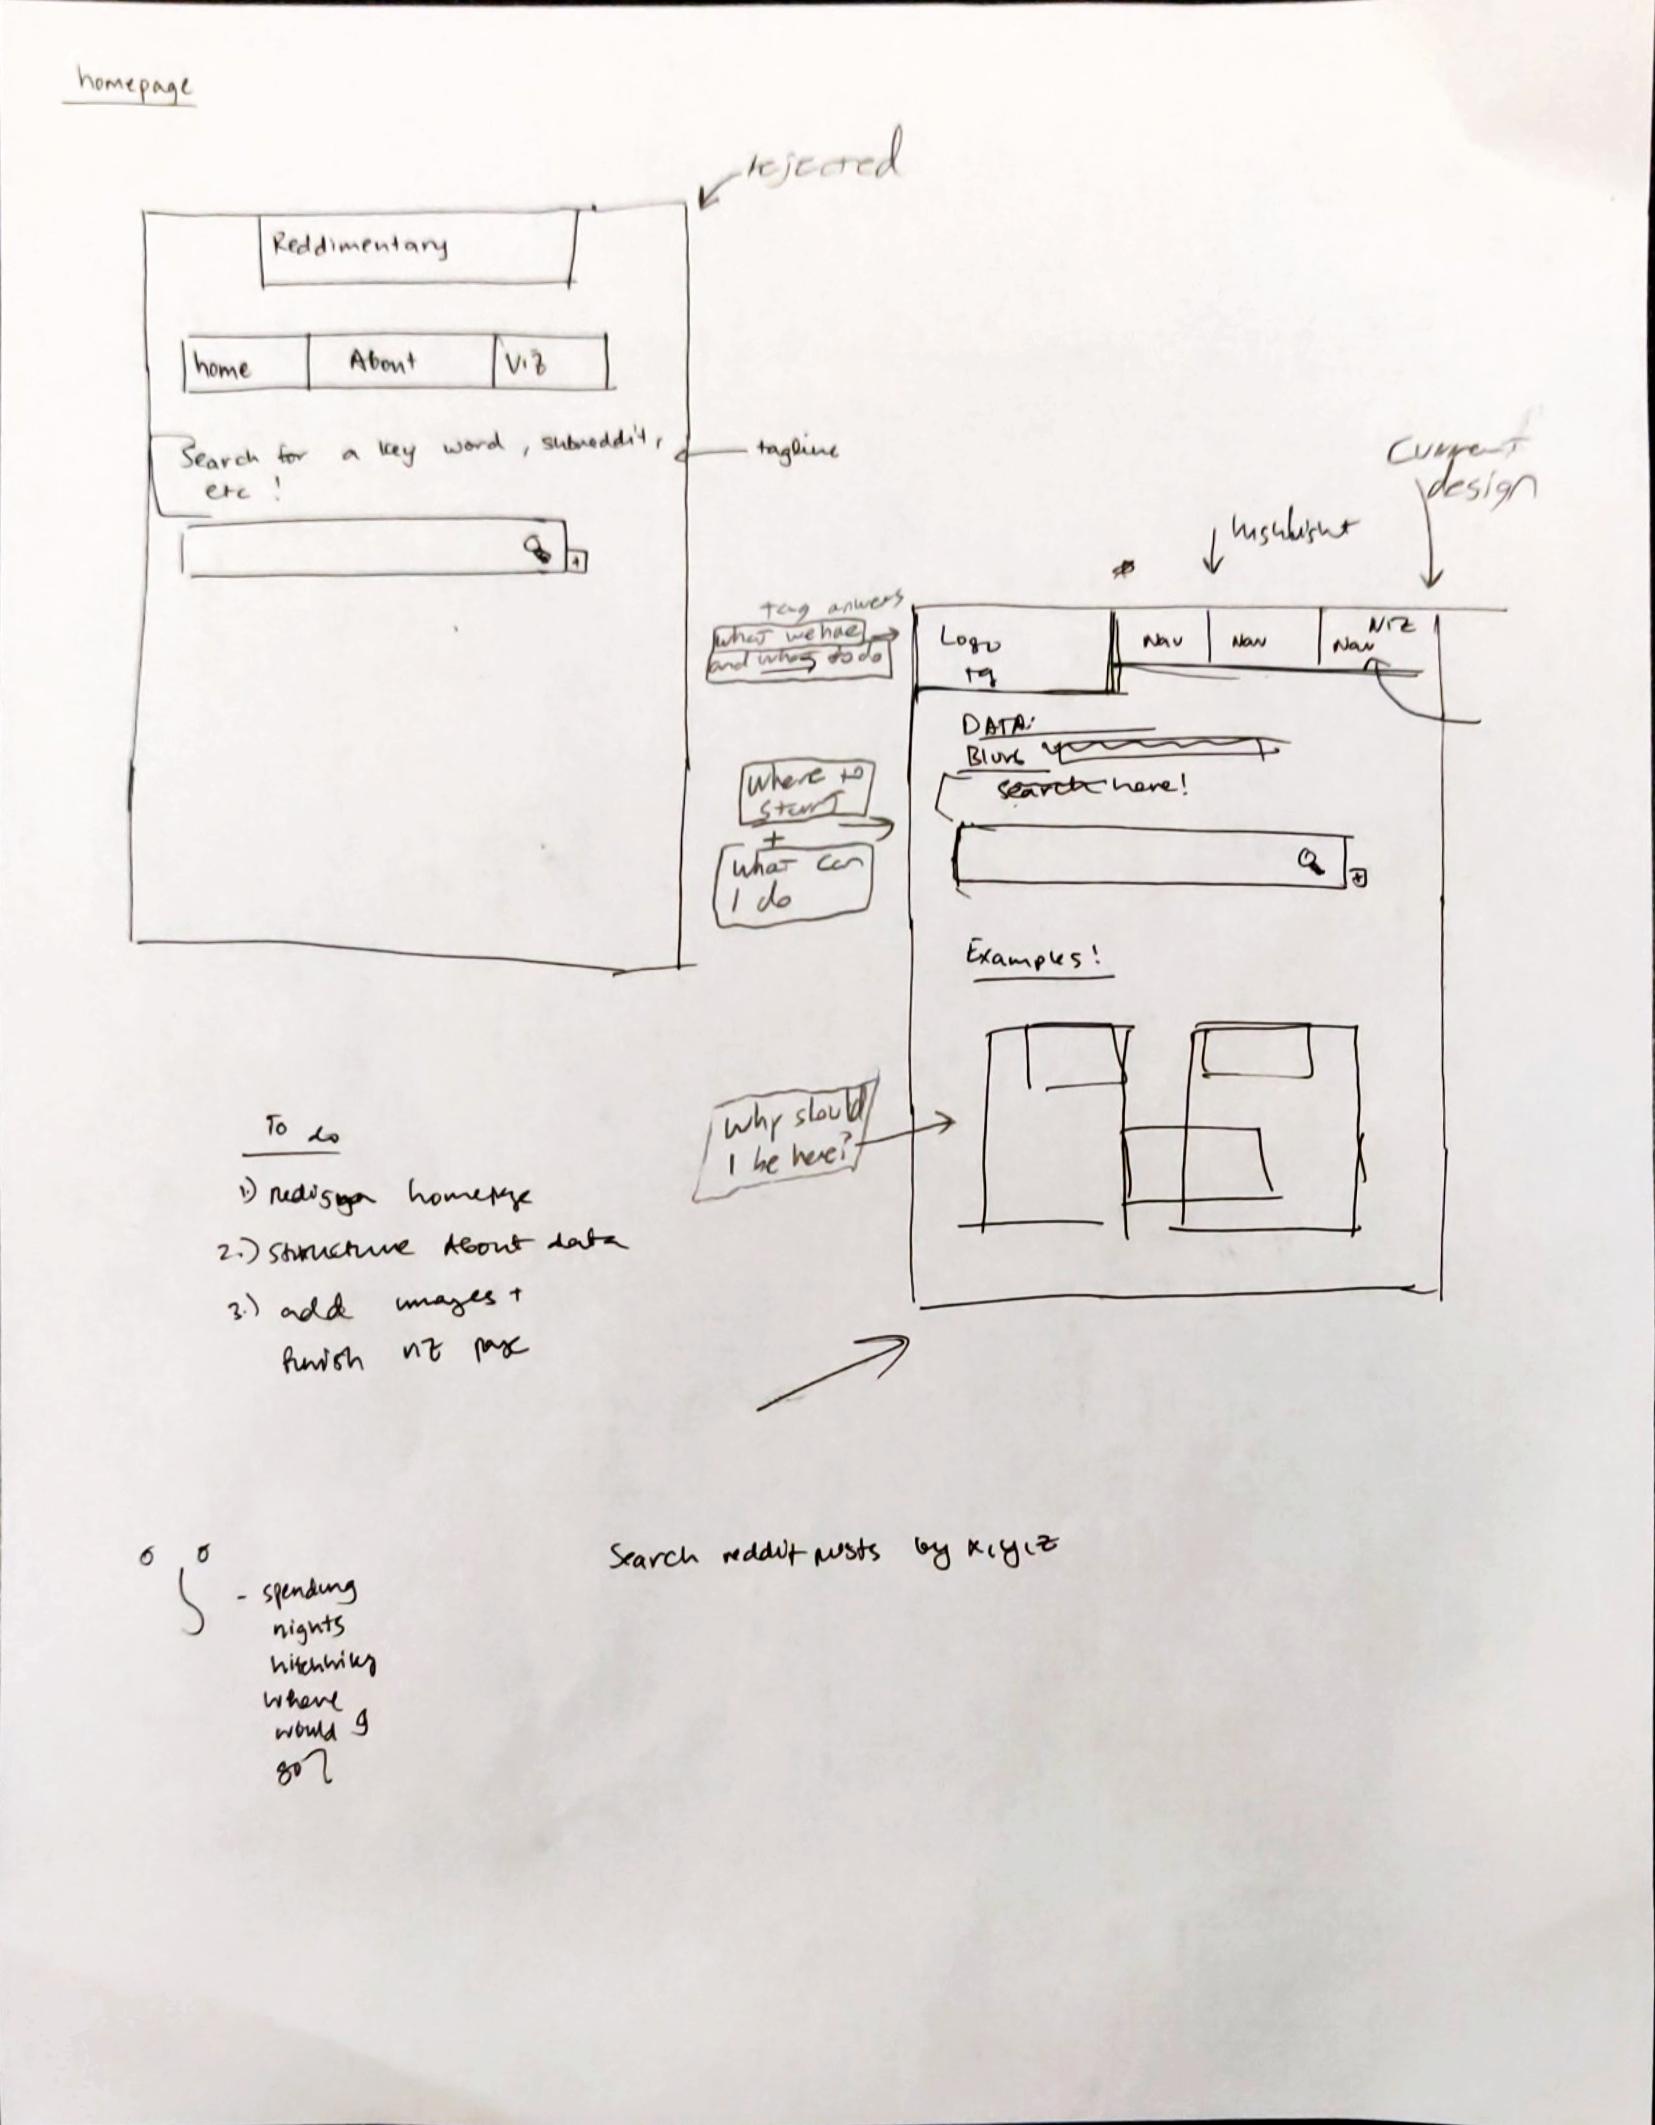 homepage
rejected
Reddimentary
home About Viz
Search for a key word, subreddit,
etc!
tagline
Current
design
highlight
tag anwers
what we have
and to do
Logo
tg
Nav Nav Viz
Nav
DATA:
Blurb
search here!
where to
start
+
what can
I do
Examples!
Why should
I be here?
To do
1.) homepage
2.) structure About data
3.) add images +
finish viz page
Search reddit posts by x,y,z
- spending
nights
where
would I
go?